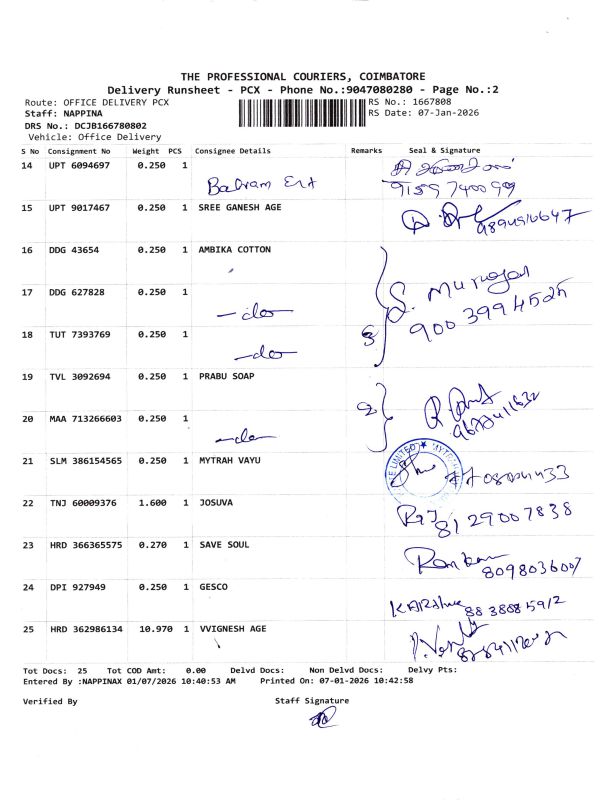 THE PROFESSIONAL COURIERS, COIMBATORE
Delivery Runsheet - PCX - Phone No.:9047080280 - Page No.:2
Route: OFFICE DELIVERY PCX RS No.: 1667808
Staff: NAPPINA RS Date: 07-Jan-2026
DRS No.: DCJB166780802
Vehicle: Office Delivery
S No Consignment No Weight PCS Consignee Details Remarks Seal & Signature
14 UPT 6094697 0.250 1
Balram Ent 9159740099
15 UPT 9017467 0.250 1 SREE GANESH AGE
16 DDG 43654 0.250 1 AMBIKA COTTON
17 DDG 627828 0.250 1 S. Murugan
-do- 9003994525
18 TUT 7393769 0.250 1 3
-do-
19 TVL 3092694 0.250 1 PRABU SOAP
2
20 MAA 713266603 0.250 1
-do-
21 SLM 386154565 0.250 1 MYTRAH VAYU
22 TNJ 60009376 1.600 1 JOSUVA
8129007838
23 HRD 366365575 0.270 1 SAVE SOUL
8098036007
24 DPI 927949 0.250 1 GESCO
8838085912
25 HRD 362986134 10.970 1 VVIGNESH AGE
Tot Docs: 25 Tot COD Amt: 0.00 Delvd Docs: Non Delvd Docs: Delvy Pts:
Entered By :NAPPINAX 01/07/2026 10:40:53 AM Printed On: 07-01-2026 10:42:58
Verified By Staff Signature